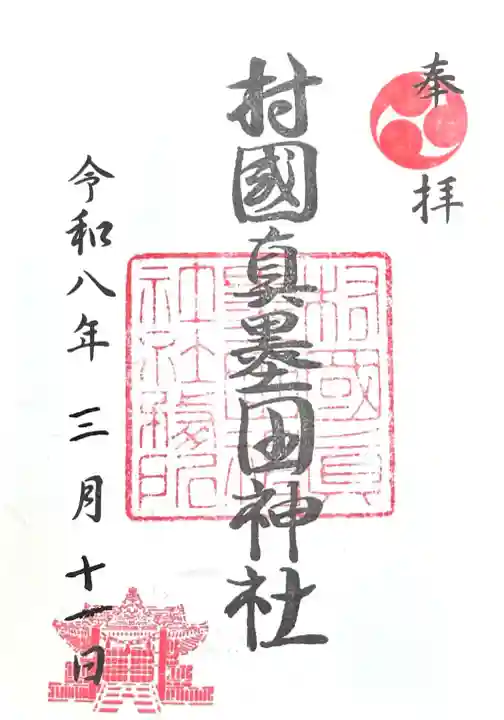 奉拝
村國真墨田神社
村國真
墨田神
社社務所
令和八年三月十一日